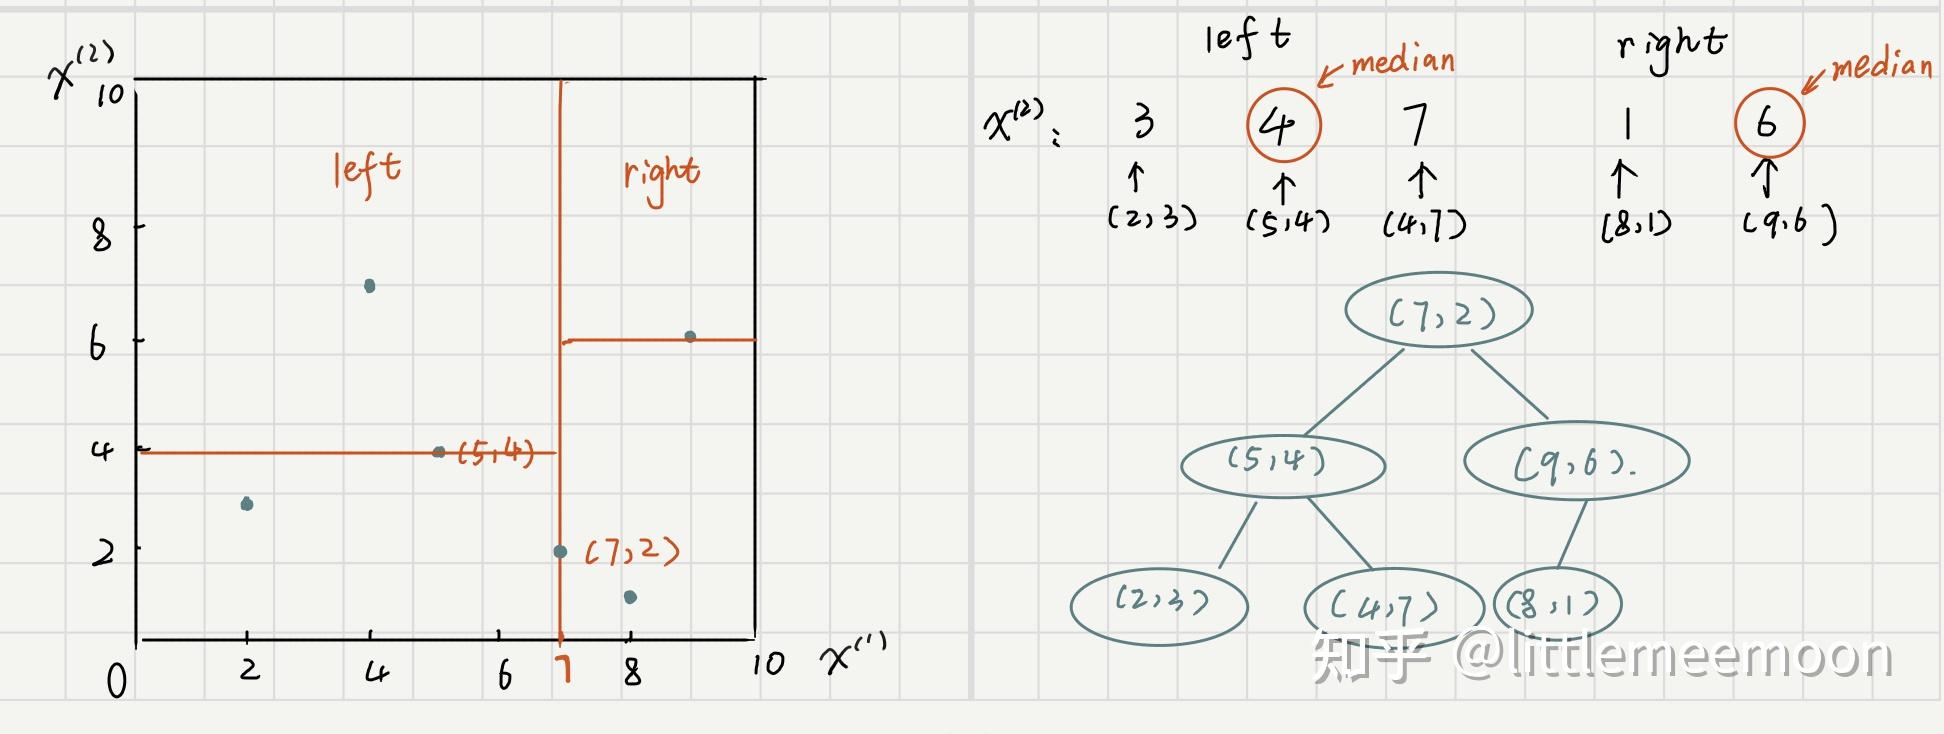 x(2)
10
8
6
4
2
0
2
4
6
7
8
10
x(1)
left
right
(5,4)
(7,2)
left
right
median
median
x(2): 3 4 7 1 6
(2,3) (5,4) (4,7) (8,1) (9,6)
(7,2)
(5,4) (9,6).
(2,3) (4,7) (8,1)
知乎 @littlemeemoon